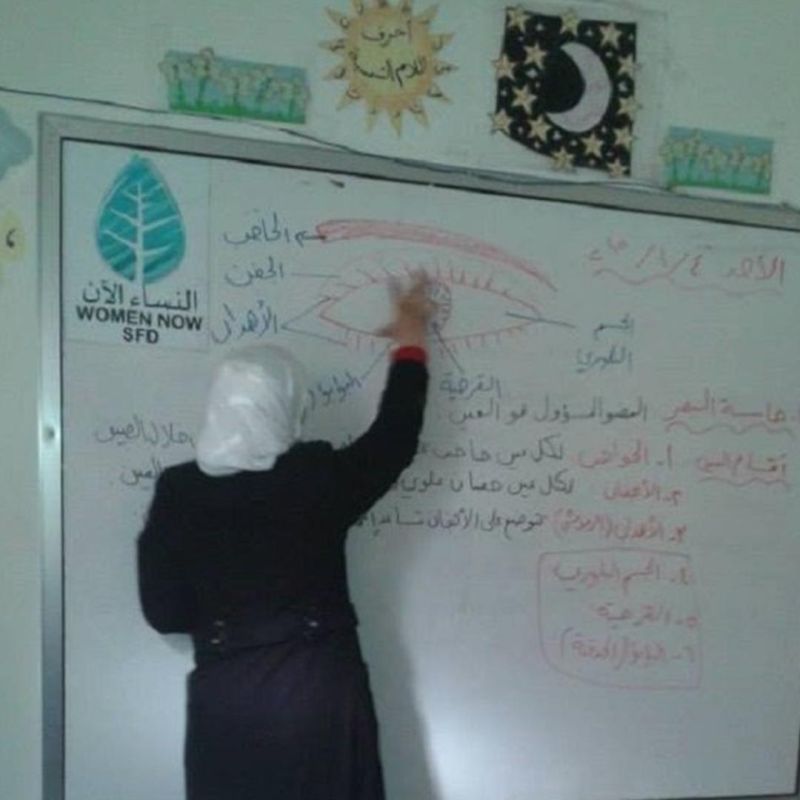 أحرف
اللام الشمسية
النساء الآن
WOMEN NOW
SFD
الأحد ٤/١/
الحاجب
الجفن
الأهداب
الجسم
البلوري
القزحية
البؤبؤ
حاسة البصر العضو المسؤول هو العين
أقسام العين ١- الحواجب لكل عين حاجب
٢- الأجفان لكل عين جفنان علوي
٣- الأهداب (الرموش) تتوضع على الأجفان
٤- الجسم البلوري
٥- القزحية
٦- البؤبؤ (الحدقة)